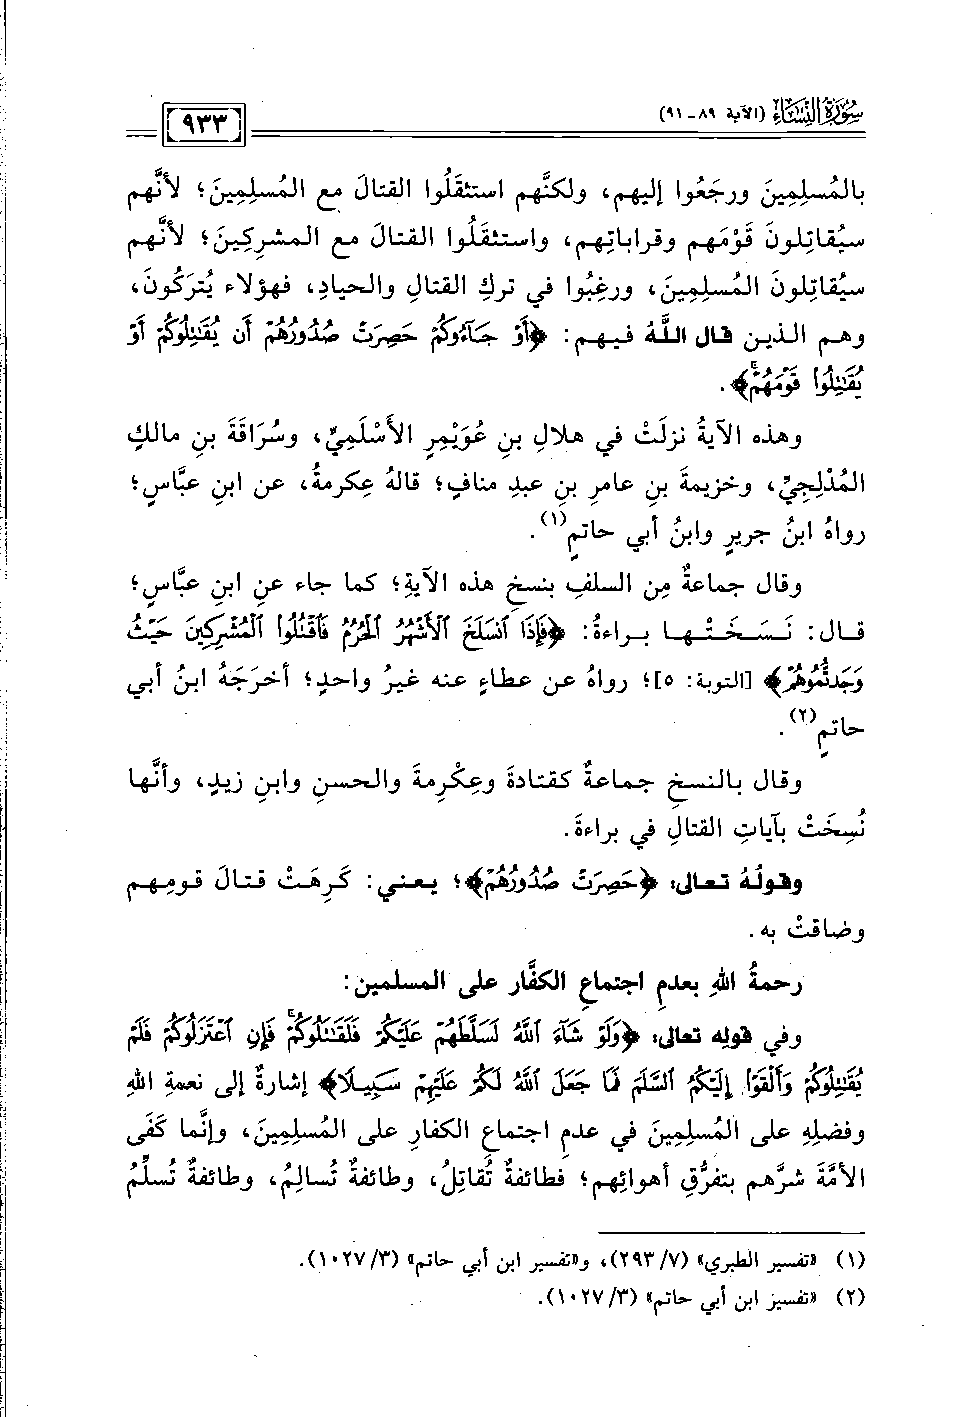 سُورَةُ النِّسَاءِ (الآية ٨٩ - ٩١)
٩٣٣
بالمُسلِمِينَ ورجَعُوا إليهم، ولكنَّهم استثقَلُوا القتالَ مع المُسلِمِينَ؛ لأنَّهم
سيُقاتِلونَ قَوْمَهم وقراباتِهم، واستثقَلُوا القتالَ مع المشركِينَ؛ لأنَّهم
سيُقاتِلونَ المُسلِمِينَ، ورغِبُوا في تركِ القتالِ والحيادِ، فهؤلاء يُترَكُونَ،
وهم الذين قال اللَّهُ فيهم: ﴿أَوْ جَآءُوكُمْ حَصِرَتْ صُدُورُهُمْ أَن يُقَٰتِلُوكُمْ أَوْ
يُقَٰتِلُوا۟ قَوْمَهُمْۚ﴾.
وهذه الآيةُ نزلَتْ في هلالِ بنِ عُوَيْمِرٍ الأَسْلَميِّ، وسُرَاقَةَ بنِ مالكٍ
المُدْلِجِيِّ، وخزيمةَ بنِ عامرِ بنِ عبدِ منافٍ؛ قالهُ عِكرمةُ، عن ابنِ عبَّاسٍ؛
رواهُ ابنُ جريرٍ وابنُ أبي حاتمٍ(١).
وقال جماعةٌ مِن السلفِ بنسخِ هذه الآيةِ؛ كما جاء عنِ ابنِ عبَّاسٍ؛
قال: نَسَخَتْها براءةُ: ﴿فَإِذَا ٱنسَلَخَ ٱلْأَشْهُرُ ٱلْحُرُمُ فَٱقْتُلُوا۟ ٱلْمُشْرِكِينَ حَيْثُ
وَجَدتُّمُوهُمْ﴾ [التوبة: ٥]؛ رواهُ عن عطاءٍ عنه غيرُ واحدٍ؛ أخرَجَهُ ابنُ أبي
حاتمٍ(٢).
وقال بالنسخِ جماعةٌ كقتادةَ وعِكْرِمةَ والحسنِ وابنِ زيدٍ، وأنَّها
نُسِخَتْ بآياتِ القتالِ في براءةَ.
وقولُهُ تعالى: ﴿حَصِرَتْ صُدُورُهُمْ﴾؛ يعني: كَرِهَتْ قتالَ قومِهم
وضاقتْ به.
رحمةُ اللهِ بعدمِ اجتماعِ الكفَّار على المسلمين:
وفي قوله تعالى: ﴿وَلَوْ شَآءَ ٱللَّهُ لَسَلَّطَهُمْ عَلَيْكُمْ فَلَقَٰتَلُوكُمْۚ فَإِنِ ٱعْتَزَلُوكُمْ فَلَمْ
يُقَٰتِلُوكُمْ وَأَلْقَوْا۟ إِلَيْكُمُ ٱلسَّلَمَ فَمَا جَعَلَ ٱللَّهُ لَكُمْ عَلَيْهِمْ سَبِيلًا﴾ إشارةٌ إلى نعمةِ اللهِ
وفضلِهِ على المُسلِمِينَ في عدمِ اجتماعِ الكفارِ على المُسلِمِينَ، وإنَّما كَفَى
الأمَّةَ شرَّهم بتفرُّقِ أهوائِهم؛ فطائفةٌ تُقاتِلُ، وطائفةٌ تُسالِمُ، وطائفةٌ تُسلِّمُ
(١) «تفسير الطبري» (٧/ ٢٩٣)، و«تفسير ابن أبي حاتم» (٣/ ١٠٢٧).
(٢) «تفسير ابن أبي حاتم» (٣/ ١٠٢٧).